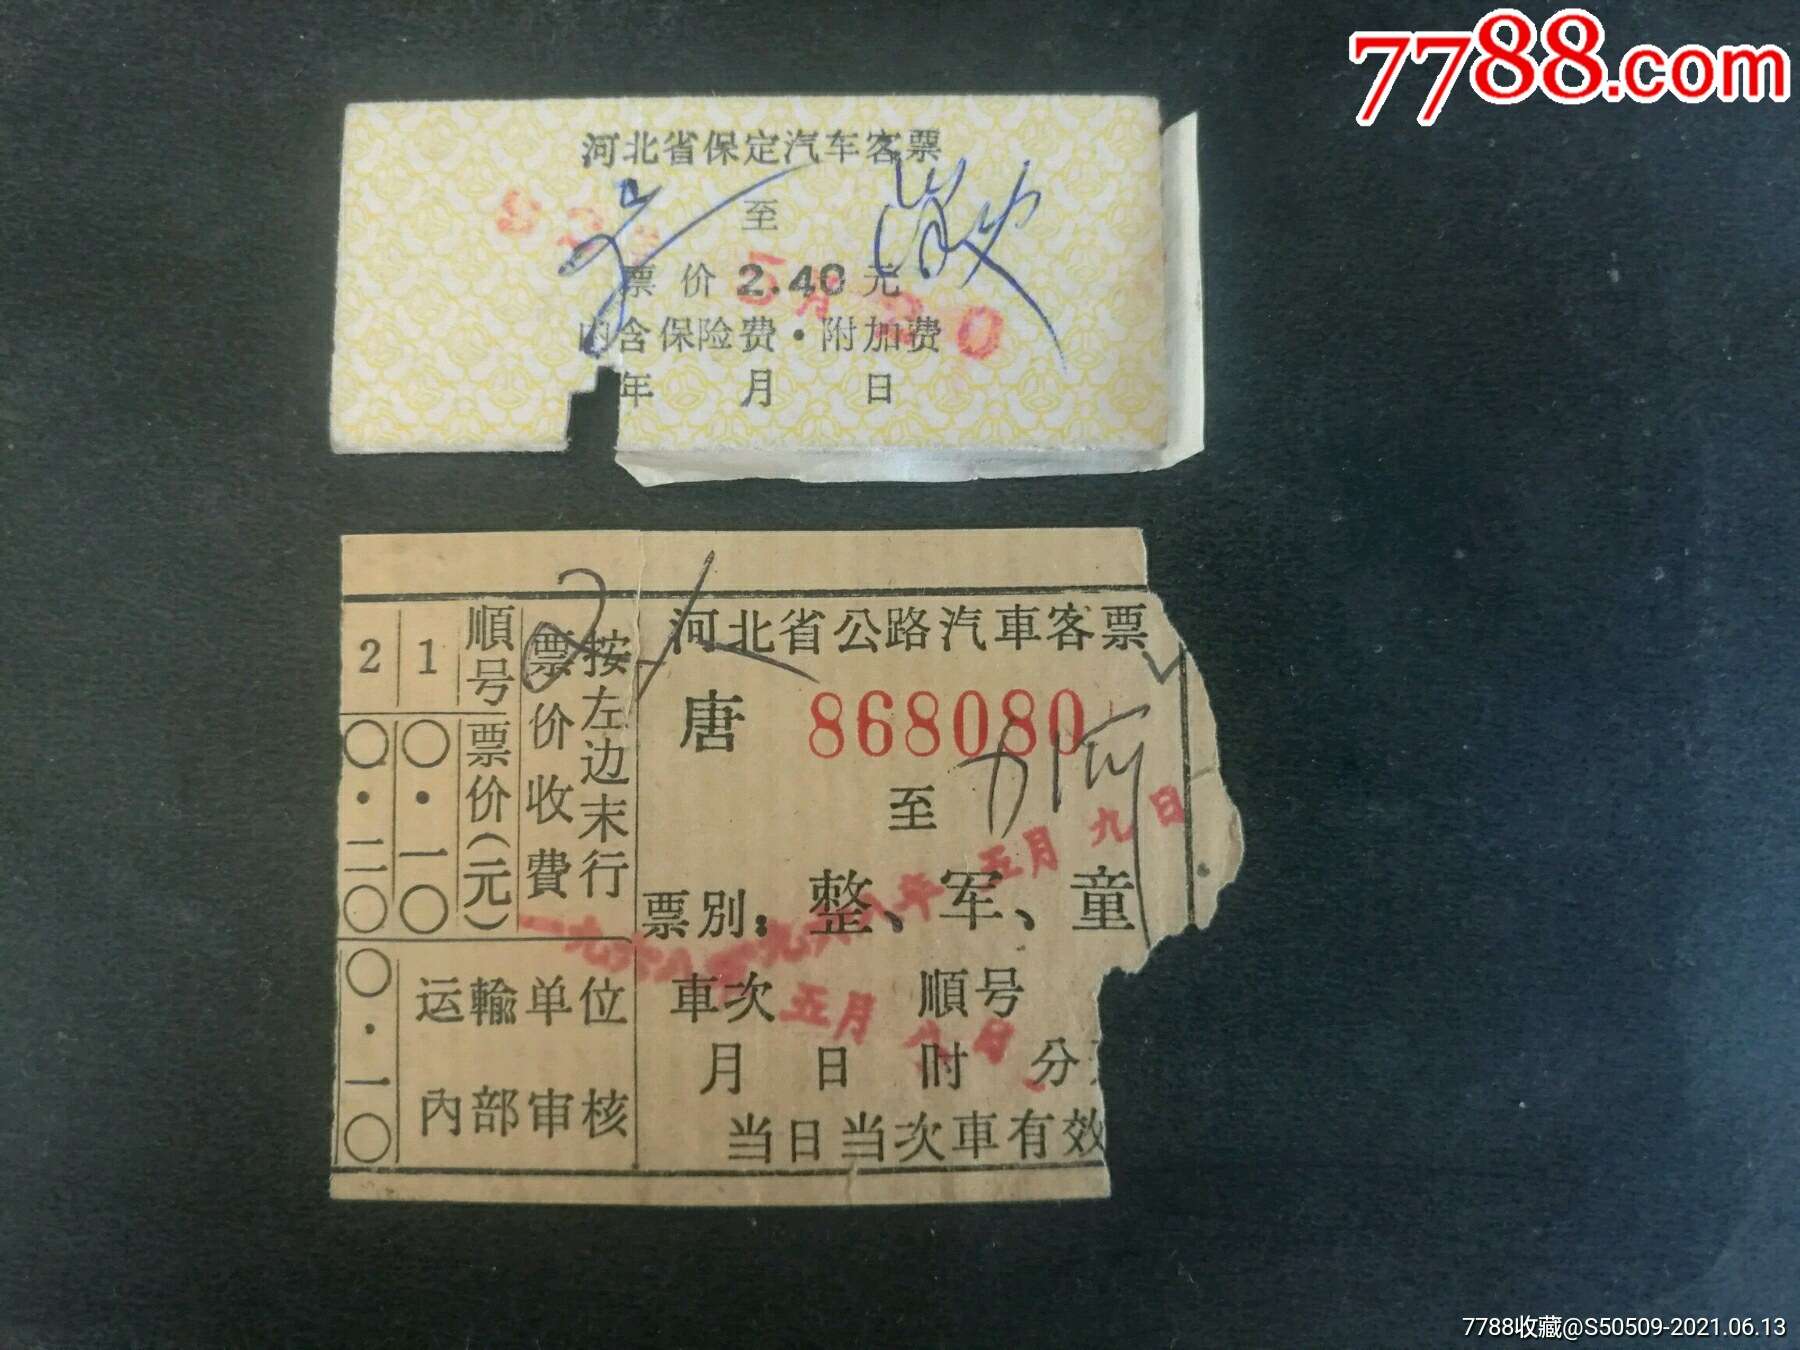 7788.com
河北省保定汽车客票
至
票价 2.40 元
内含保险费·附加费
年 月 日
河北省公路汽車客票
唐 868080
至
票別：整、军、童
車次 順号
月 日 时 分
当日当次車有效
按左边末行
票价收費
順号 1 2
票价(元) 〇·一〇 〇·二〇
运輸单位
內部审核
〇·一〇
一九六八年五月九日
五月八日
7788收藏@S50509-2021.06.13